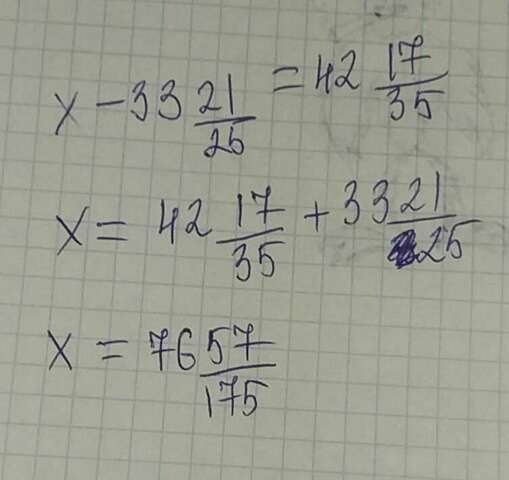 x - 33 21/25 = 42 17/35
x = 42 17/35 + 33 21/25
x = 76 57/175